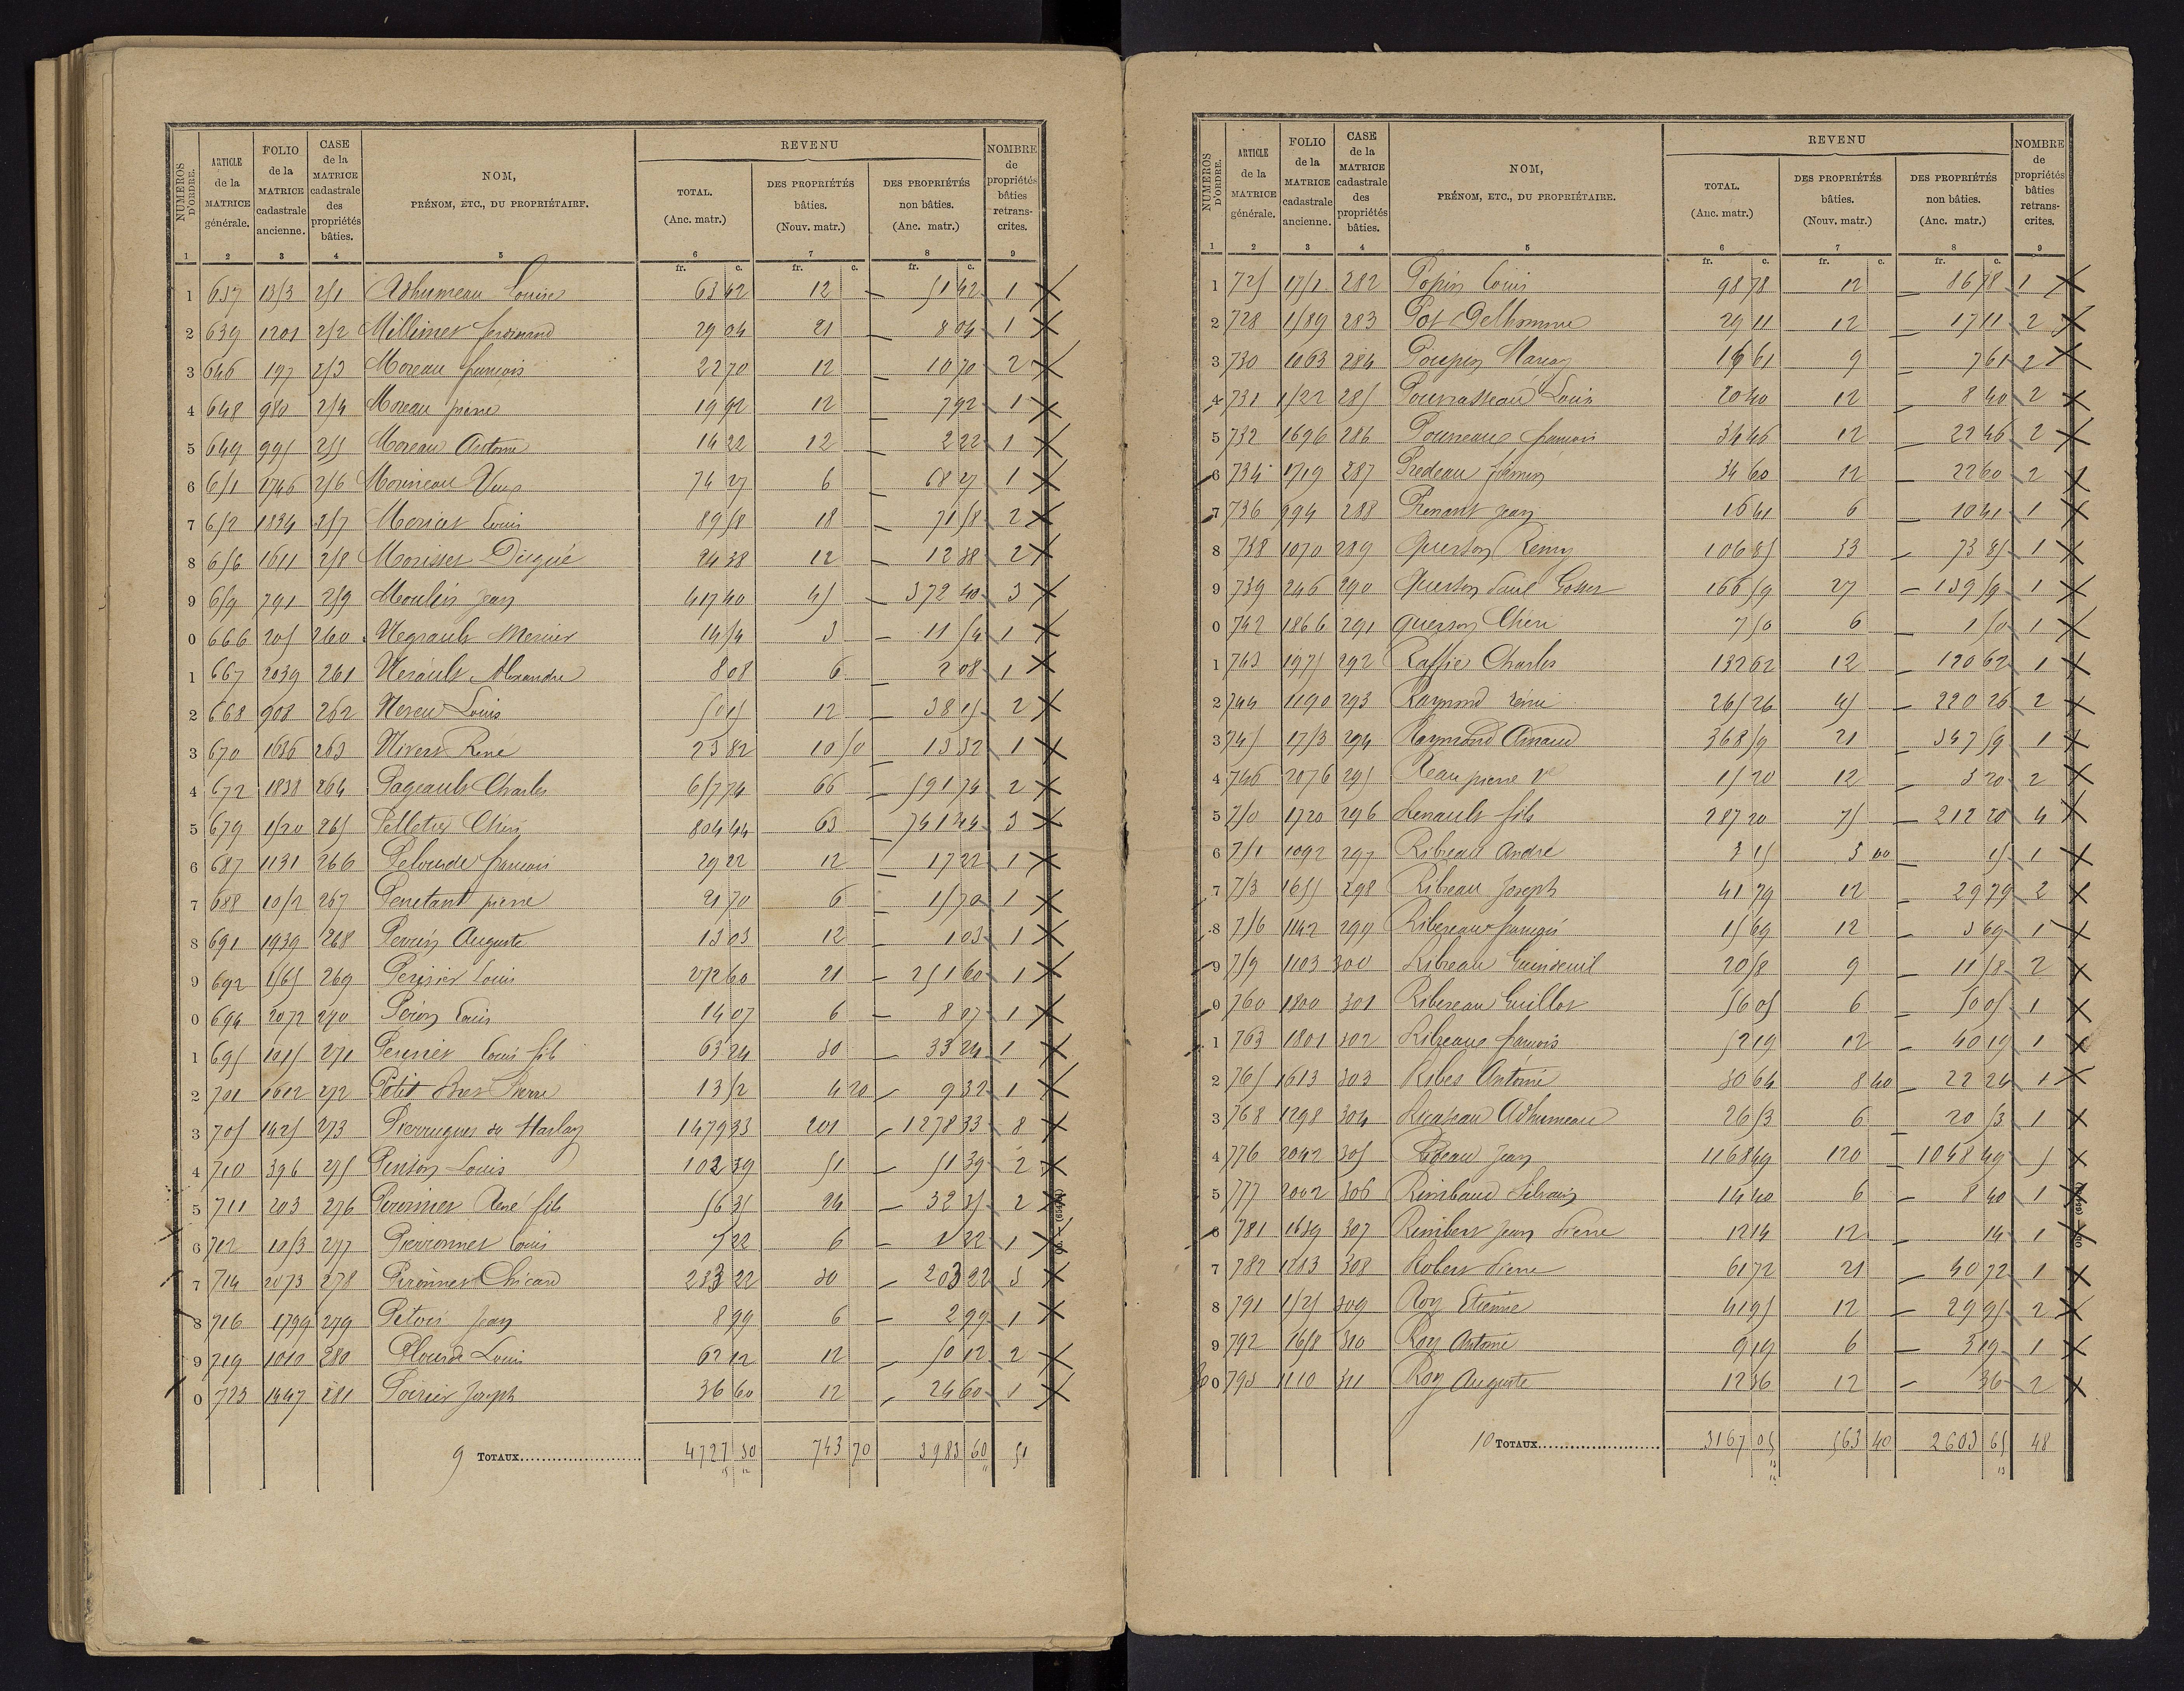 NUMÉROS D'ORDRE. | ARTICLE de la MATRICE générale. | FOLIO de la MATRICE cadastrale ancienne. | CASE de la MATRICE cadastrale des propriétés bâties. | NOM, PRÉNOM, ETC., DU PROPRIÉTAIRE. | REVENU | TOTAL. (Anc. matr.) | DES PROPRIÉTÉS bâties. (Nouv. matr.) | DES PROPRIÉTÉS non bâties. (Anc. matr.) | NOMBRE de propriétés bâties retranscrites.
1 2 3 4 5 6 7 8 9
fr. c. fr. c. fr. c.
1 637 1353 251 Adhumeau Louise 63 42 12 — 51 42 1 X
2 639 1201 252 Millimet ferdinand 29 04 21 — 8 04 1 X
3 646 197 253 Moreau francois 22 70 12 — 10 70 2 X
4 648 980 254 Moreau pierre 19 92 12 — 7 92 1 X
5 649 995 255 Moreau Antoine 14 22 12 — 2 22 1 X
6 651 1746 256 Morineau 74 27 6 — 68 27 1 X
7 652 1834 257 Moricet Louis 89 58 18 — 71 58 2 X
8 656 1611 258 Morisset 24 38 12 — 12 38 2 X
9 659 791 259 Moulin Jean 417 40 45 — 372 40 3 X
0 666 205 260 Negrault Mercier 14 54 3 — 11 54 1 X
1 667 2039 261 Nerault Alexandre 8 08 6 — 2 08 1 X
2 668 908 262 Neveu Louis 50 15 12 — 38 15 2 X
3 670 1636 263 Nivert René 23 82 10 50 — 13 32 1 X
4 672 1838 264 Pageault Charles 657 74 66 — 591 74 2 X
5 679 1520 265 Pelletier Chéri 804 44 63 — 741 44 3 X
6 687 1131 266 Pelourde francois 29 22 12 — 17 22 1 X
7 688 1052 267 Penetant pierre 21 70 6 — 15 70 1 X
8 691 1939 268 Perrin Auguste 13 03 12 — 1 03 1 X
9 692 1565 269 Perisier Louis 272 60 21 — 251 60 1 X
0 694 2072 270 Péron Louis 14 07 6 — 8 07 1 X
1 695 1015 271 Louis fils 63 24 30 — 33 24 1 X
2 701 1612 272 Petit Pierre 13 52 4 20 — 9 32 1 X
3 705 1425 273 Pierrugues du Harlay 1479 33 201 — 1278 33 8 X
4 710 396 275 Pinson Louis 102 39 51 — 51 39 2 X
5 711 203 276 René fils 56 35 24 — 32 35 2 X
6 712 1053 277 Pieronnet Louis 7 22 6 — 1 22 1 X
7 714 2073 278 Pironnet Chicard 233 22 30 — 203 22 3 X
8 716 1799 279 Petois Jean 8 99 6 — 2 99 1 X
9 719 1010 280 Plourde Louis 62 12 12 — 50 12 2 X
0 723 1447 281 Poirier Joseph 36 60 12 — 24 60 1 X
9 TOTAUX 4727 30 743 70 3983 60 51
NUMÉROS D'ORDRE. | ARTICLE de la MATRICE générale. | FOLIO de la MATRICE cadastrale ancienne. | CASE de la MATRICE cadastrale des propriétés bâties. | NOM, PRÉNOM, ETC., DU PROPRIÉTAIRE. | REVENU | TOTAL. (Anc. matr.) | DES PROPRIÉTÉS bâties. (Nouv. matr.) | DES PROPRIÉTÉS non bâties. (Anc. matr.) | NOMBRE de propriétés bâties retranscrites.
1 2 3 4 5 6 7 8 9
fr. c. fr. c. fr. c.
1 725 1751 282 Popin Louis 98 78 12 — 86 78 1 X
2 728 1589 283 Pot Delhomme 29 11 12 — 17 11 2 X
3 730 1063 284 Poupin 16 61 9 7 61 2 X
4 731 1522 285 Pourrasseau Louis 20 40 12 — 8 40 2 X
5 732 1696 286 francois 34 46 12 22 46 2 X
6 734 1719 287 Predeau firmin 34 60 12 22 60 2 X
7 736 994 288 Prenant Jean 16 41 6 — 10 41 1 X
8 738 1070 289 Querton Remy 106 85 33 — 73 85 1 X
9 739 246 290 Querton Paul 166 59 27 — 139 59 1 X
0 742 1866 291 Querson Chéri 7 50 6 — 1 50 1 X
1 743 1975 292 Raffie Charles 132 62 12 — 120 62 1 X
2 744 1190 293 Raymond rémi 265 26 45 — 220 26 2 X
3 745 1753 294 Raymond Arnaud 368 59 21 — 347 59 1 X
4 746 2076 295 Reau pierre Ve 15 20 12 — 3 20 2 X
5 750 1720 296 Renault fils 287 20 75 — 212 20 4 X
6 751 1092 297 Ribreau André 3 15 3 00 — 15 1 X
7 753 1655 298 Ribreau Joseph 41 79 12 — 29 79 2 X
8 756 1142 299 Ribereau francois 15 69 12 — 3 69 1 X
9 759 1103 300 Ribreau 20 58 9 — 11 58 2 X
0 760 1800 301 Ribereau Guillot 56 05 6 50 05 1 X
1 763 1801 302 Ribreau francois 52 19 12 — 40 19 1 X
2 765 1613 303 Ribes Antoine 30 64 8 40 — 22 24 1 X
3 768 1298 304 Adhumeau 26 53 6 — 20 53 1 X
4 776 2042 305 Jean 1168 49 120 — 1048 49 5 X
5 777 2002 306 Rimbaud 14 40 6 — 8 40 1 X
6 781 1639 307 Rimbert Jean Pierre 12 14 12 — 14 1 X
7 787 1213 308 Robert Pierre 61 72 21 — 40 72 1 X
8 791 1525 309 Roy Etienne 41 95 12 — 29 95 2 X
9 792 1658 310 Roy Antoine 9 19 6 — 3 19 1 X
0 793 1110 311 Roy Auguste 12 36 12 — 36 2 X
10 TOTAUX 3167 05 563 40 2603 65 48